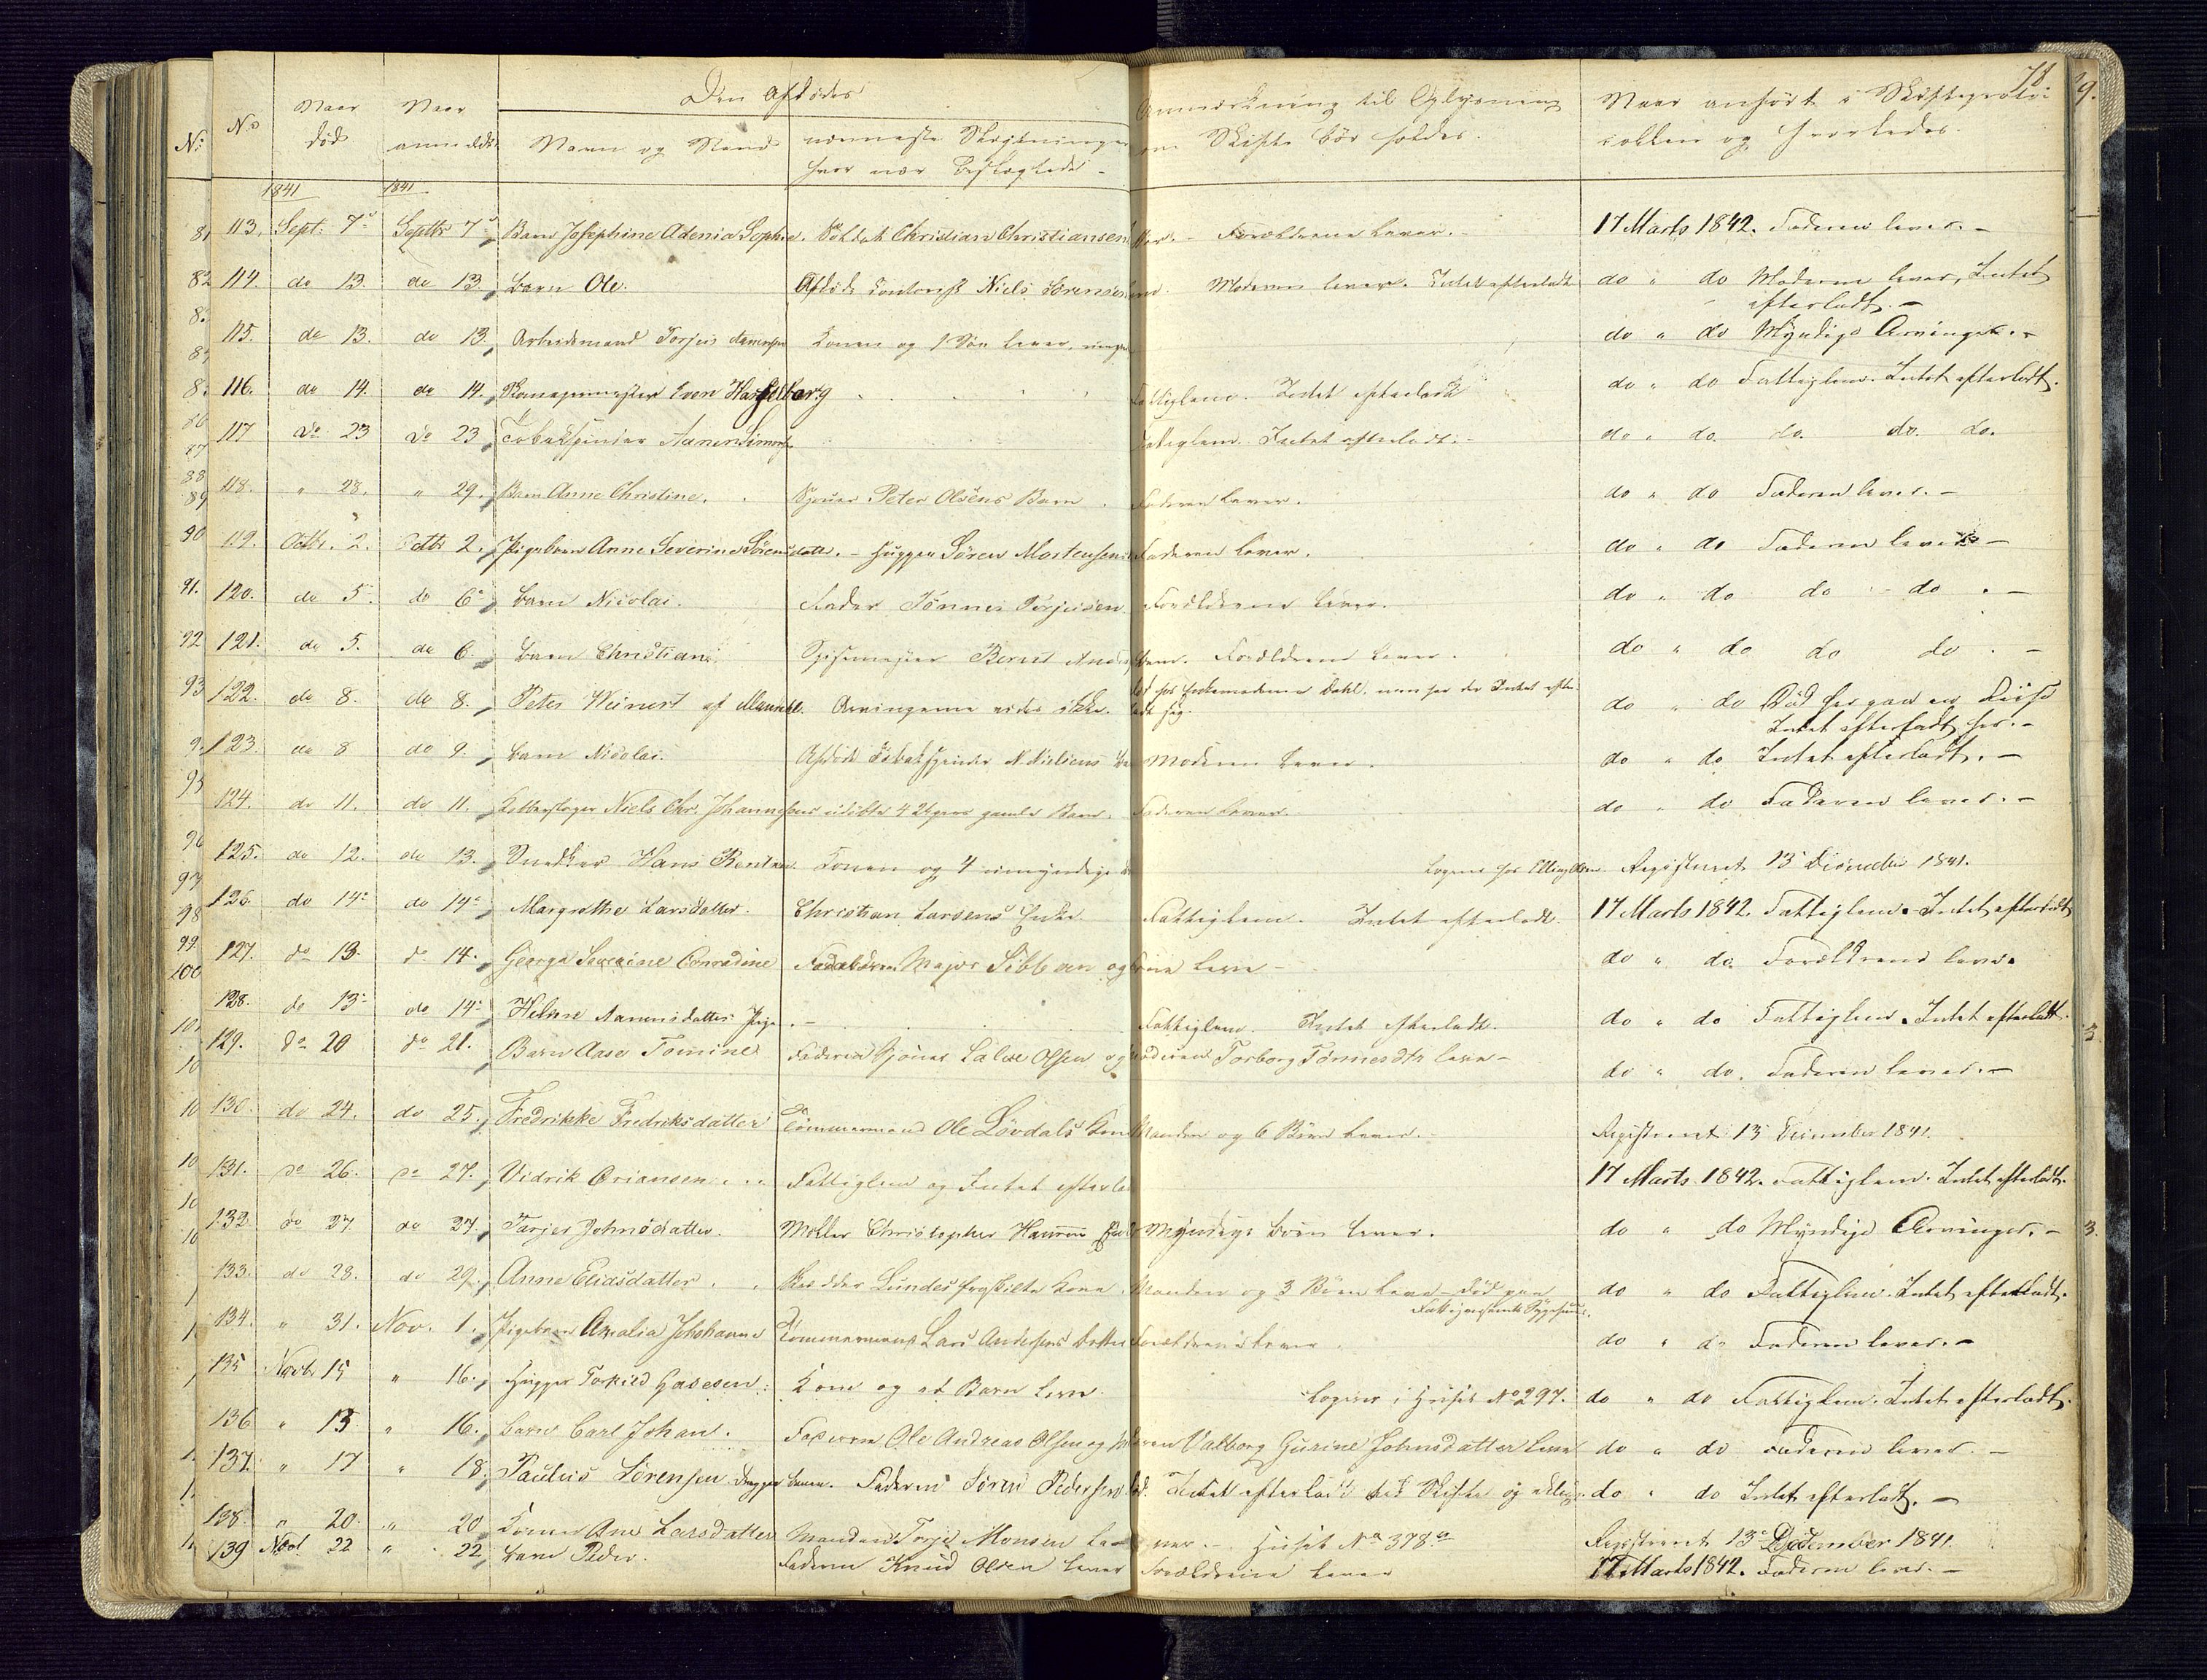 78
Den Afdødes
No
Naar død
Naar anmeldt
Navn og Stand
nærmeste Slægtninge
hvor nær beslægtede
Anmærkning til Oplysning
om Skifte bør holdes.
Naar anført i Skifteproto-
collen og hvorledes.
1841 1841
113. Sept. 7 Septbr 7 Barn Josephine Adenia Sophie. Soldat Christian Christiansen Forældrene lever. 17 Marts 1842. Faderen lever.
114. do 13. do 13 Barn Ole. Afdøde Niels Sørensens Moderen lever. Intet efterladt do " do Moderen lever, Intet
efterladt.
115. do 13. do 13. Arbeidsmand Torjus Konen og 1 Søn lever do " do Myndige Arvinger.
116. do 14. do 14. Even Hasselberg Fattiglem. Intet efterladt do " do Fattiglem. Intet efterladt.
117 do 23 do 23 Tobakspinder Aanen Simonsen Fattiglem. Intet efterladt. do " do. do. do. do.
118. " 28. " 29. Barn Anne Christine. Peter Olsens Barn Faderen lever. do " do Faderen lever.
119. Octbr. 2. Octbr 2. Pigebarn Anne Severine Sörensdatter. Hugger Sören Mortensen Faderen lever. do " do Faderen lever
120. do 5. do 6 Barn Nicolai. Fader Tönnes Torjusen Forældrene lever. do " do do do
121. do 5. do 6. Barn Christian. Berent Forældrene lever. do " do do do
122. do 8. do 8. Peter Weinert af Arvingerne vides ikke. Dahl, Intet efter-
ladt sig. do " do Död her paa en Reise
Intet efterladt her.
123. do 8 do 9. Barn Nicolai. Afdøde Tobakspinder N. Nielsens Moderen lever. do " do Intet efterladt.
124. do 11. do 11. Niels Chr. Johannesens udöbte 4 Uger gamle Barn. Faderen lever. do " do Faderen lever.
125. do 12. do 13. Snedker Hans Konen og 4 umyndige Logerer hos Elling Olsen. Registreret 13 December 1841.
126. do 14 do 14 Margrethe Larsdatter. Christian Larsens Enke Fattiglem. Intet efterladt. 17 Marts 1842. Fattiglem. Intet efterladt
127. do 13. do 14. Georga Severine Conradine Forældrene Major Sibbern og Frue leve do " do. Forældrene lever.
128. do 13 do 14 Helene Aanensdatter Pige Fattiglem. Intet efterladt. do " do Fattiglem. Intet efterladt.
129. do 20 do 21. Barn Aase Tomine Faderen Salve Olsen og Moderen Torborg Tönnesdtr leve do " do. Faderen lever.
130. do 24. do 25. Fredrikke Fredriksdatter Tömmermand Ole Lövdals Kone Manden og 6 Börn lever. Registreret 13 December 1841.
131. do 26. do 27. Didrik Briansen Fattiglem og Intet efterladt 17 Marts 1842. Fattiglem. Intet efterladt.
132 do 27 do 27. Torjer Johnsdatter. Möller Christopher Enke Myndige Börn lever. do " do Myndige Arvinger.
133. do 28. do 29. Anne Eliasdatter Lundes fraskilte Kone. Manden og 3 Börn leve död paa
Fattigvæsenets Sygehuus. do " do Fattiglem. Intet efterladt.
134. " 31. Nov. 1. Pigebarn Amalia Johanne Tömmermand Lars Andersens Datter Forældrene lever do " do Faderen lever.
135 Novbr 15 " 16. Hugger Torkild Gasesen. Kone og et Barn leve. Logerer i Huset No 297. do " do Fattiglem. Intet efterladt.
136 " 13 " 16. Barn Carl Johan. Faderen Ole Andreas Olsen og Moderen Valborg Gurine Johnsdatter leve do " do Faderen lever.
137. " 17 " 18. Paulus Sörensen Faderen Sören Pedersen död. Intet efterladt til Skifte og do " do Intet efterladt.
138. " 20. " 20 Konen Ane Larsdatter Manden Torje Monsen lever Huset No 378 a Registreret 13 December 1841.
139 Novbr 22 " 22 Barn Peder. Faderen Knud Olsen lever Forældrene lever 17 Marts 1842. Faderen lever.